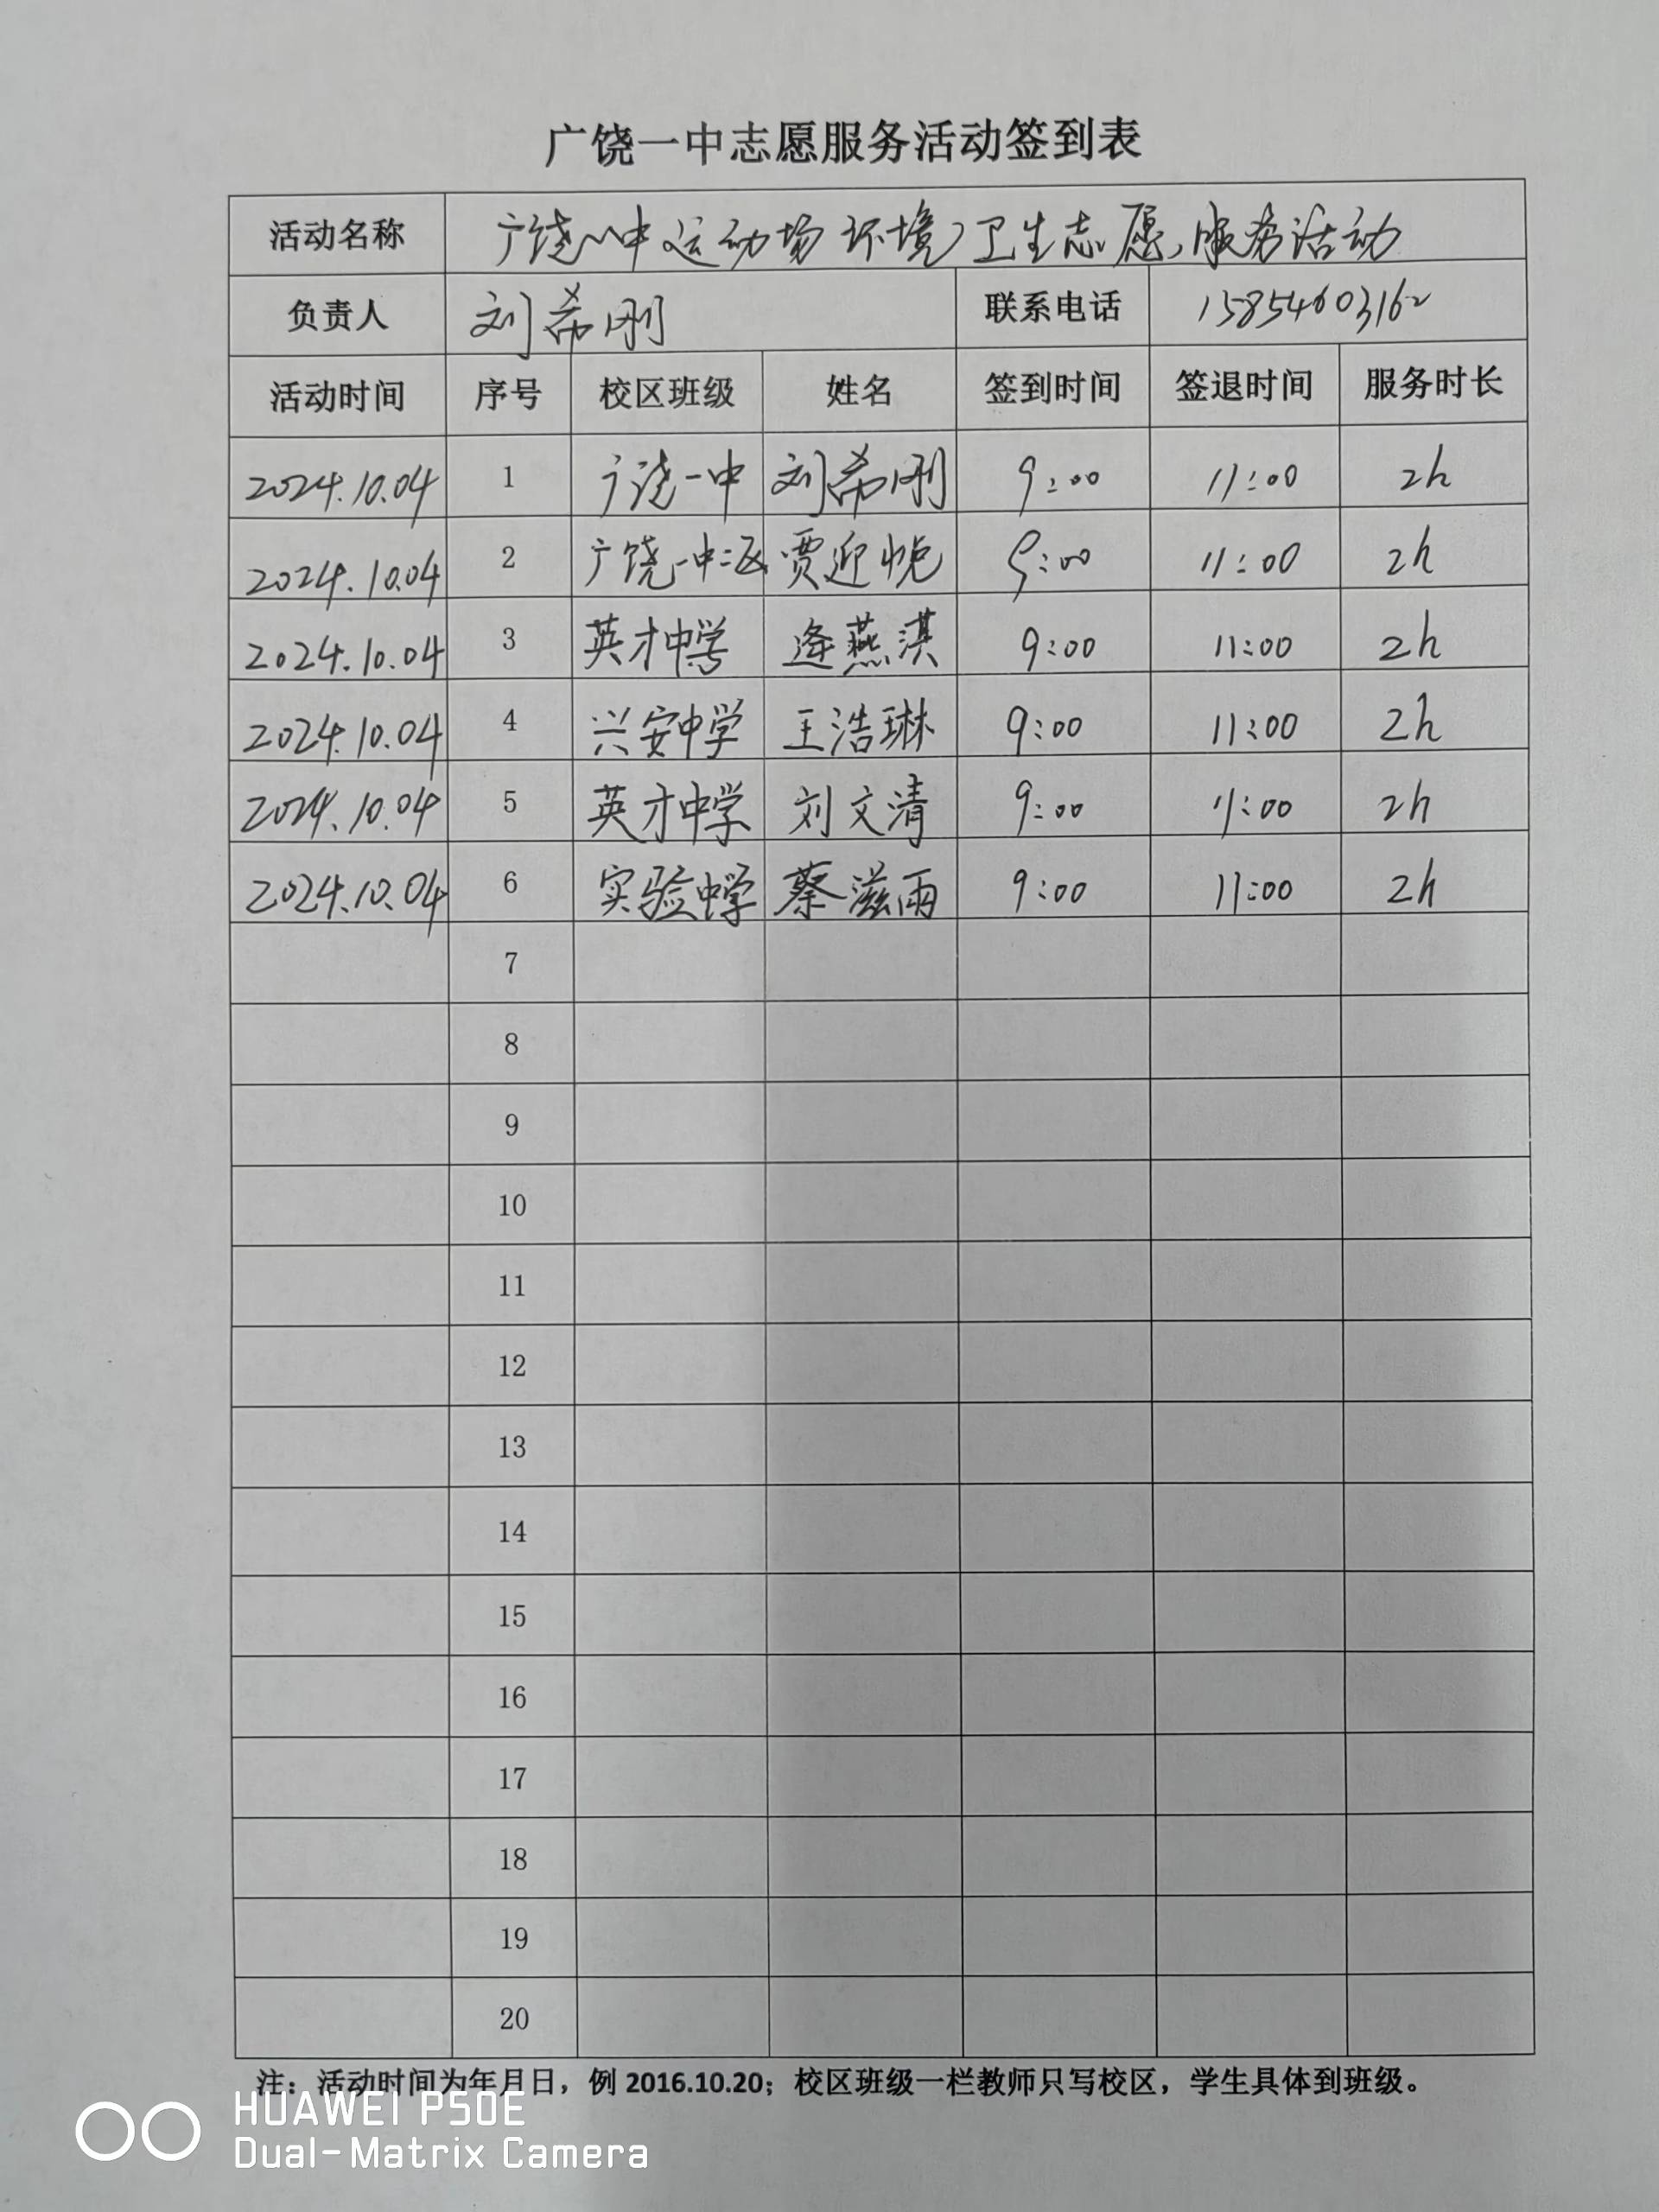 广饶一中志愿服务活动签到表
活动名称 广饶一中运动场环境卫生志愿服务活动
负责人 刘希刚 联系电话 15854603162
活动时间 序号 校区班级 姓名 签到时间 签退时间 服务时长
2024.10.04 1 广饶一中 刘希刚 9:00 11:00 2h
2024.10.04 2 广饶一中二区 贾迎悦 9:00 11:00 2h
2024.10.04 3 英才中学 逄燕淇 9:00 11:00 2h
2024.10.04 4 兴安中学 王浩琳 9:00 11:00 2h
2024.10.04 5 英才中学 刘文清 9:00 11:00 2h
2024.10.04 6 实验中学 蔡滋雨 9:00 11:00 2h
7
8
9
10
11
12
13
14
15
16
17
18
19
20
注：活动时间为年月日，例 2016.10.20；校区班级一栏教师只写校区，学生具体到班级。
HUAWEI P50E
Dual-Matrix Camera